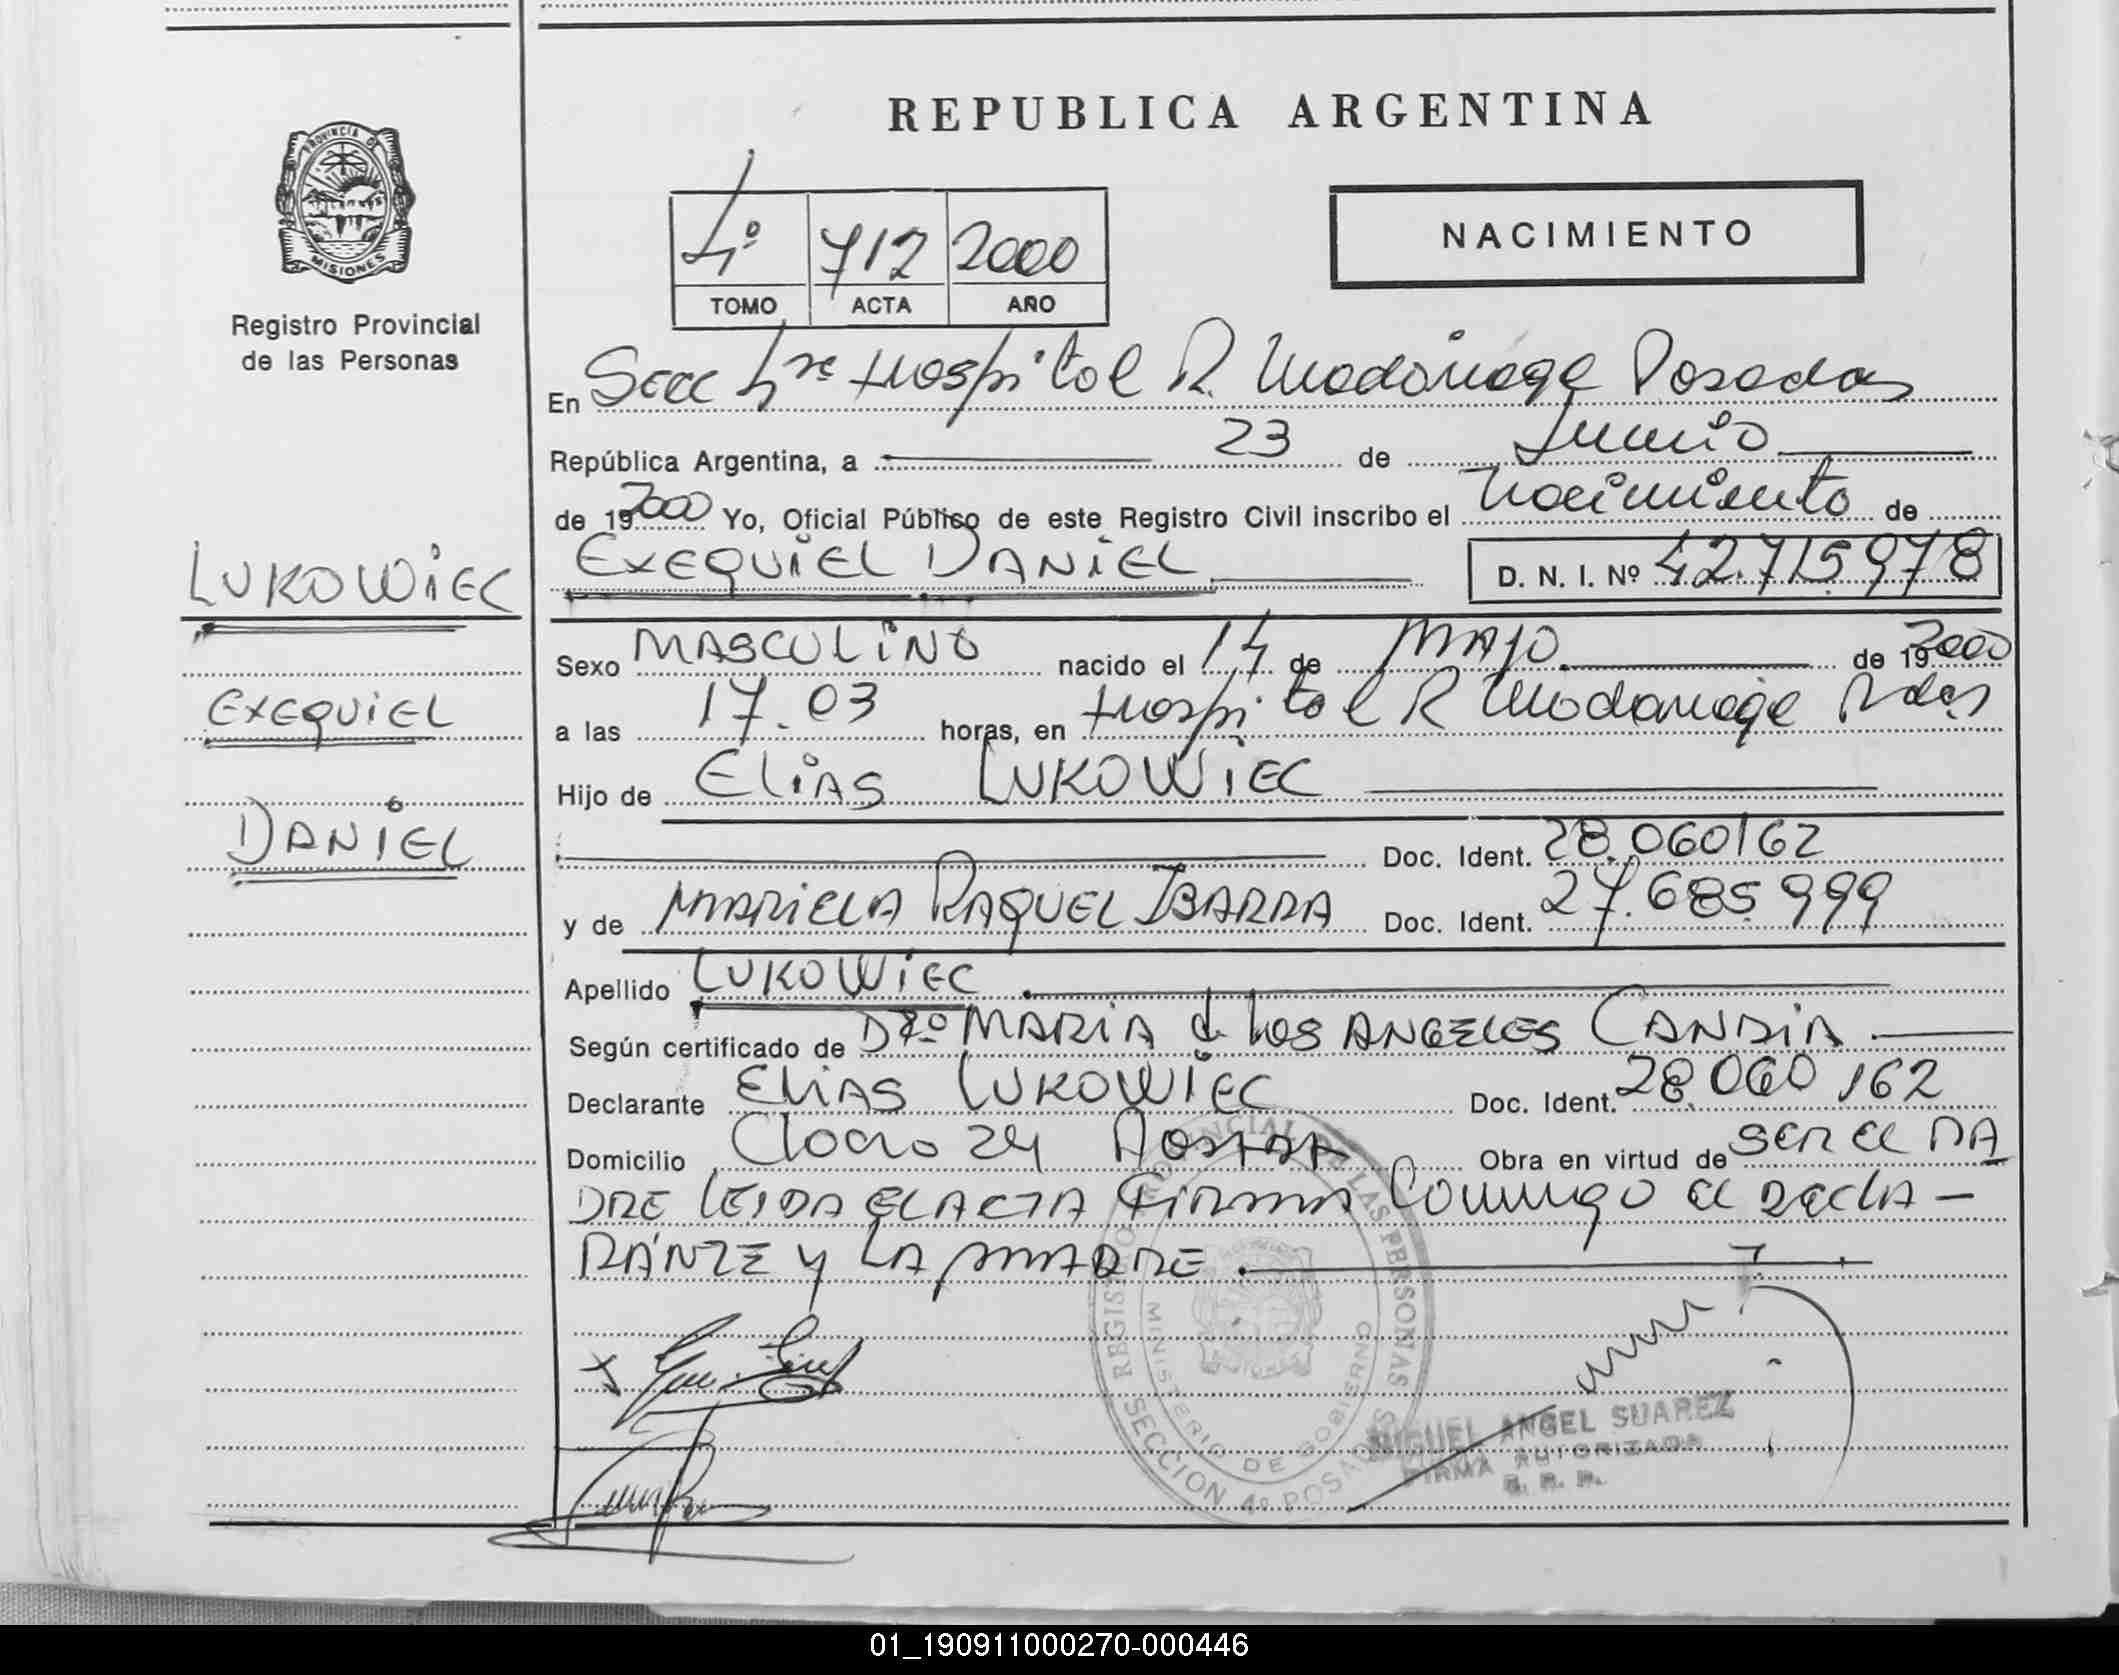 REPUBLICA ARGENTINA
PROVINCIA DE
MISIONES
Registro Provincial
de las Personas
4º 712 2000
TOMO ACTA AÑO
NACIMIENTO
En Secc 4ta Hospital R. Madariaga Posadas
República Argentina, a 23 de Junio
de 192000 Yo, Oficial Público de este Registro Civil inscribo el Nacimiento de
EXEQUIEL DANIEL D. N. I. Nº 42.715.978
LUKOWIEC
Sexo MASCULINO nacido el 14 de MAYO de 192000
EXEQUIEL
a las 17.03 horas, en Hospital R Madariaga Pdas
Hijo de ELIAS LUKOWIEC
DANIEL
Doc. Ident. 28.060162
y de MARIELA RAQUEL IBARRA Doc. Ident. 27.685.999
Apellido LUKOWIEC
Según certificado de Dra MARIA de los ANGELES CANDIA
Declarante ELIAS LUKOWIEC Doc. Ident. 28.060 162
Domicilio 24 Obra en virtud de SER EL PA
DRE LEIDA EL ACTA FIRMAN Conmigo el DECLA-
RANTE y LA MADRE.
REGISTRO PROVINCIAL DE LAS PERSONAS
MINISTERIO DE GOBIERNO
SECCION 4º POSADAS
MIGUEL ANGEL SUAREZ
FIRMA AUTORIZADA
01_190911000270-000446